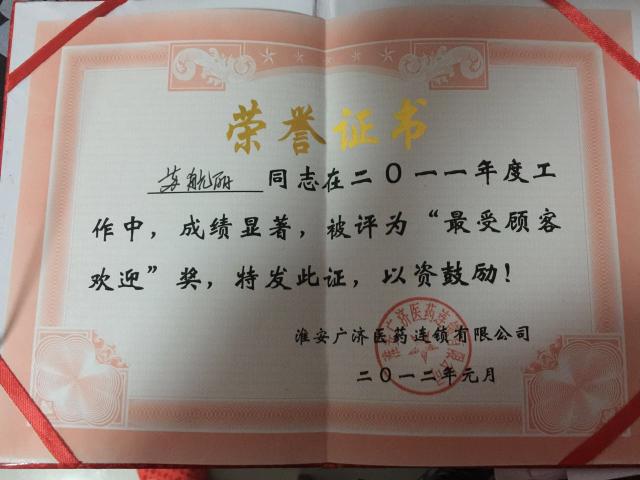 荣誉证书
同志在二〇一一年度工
作中，成绩显著，被评为“最受顾客
欢迎”奖，特发此证，以资鼓励！
淮安广济医药连锁有限公司
二〇一二年元月
淮安广济医药连锁有限公司